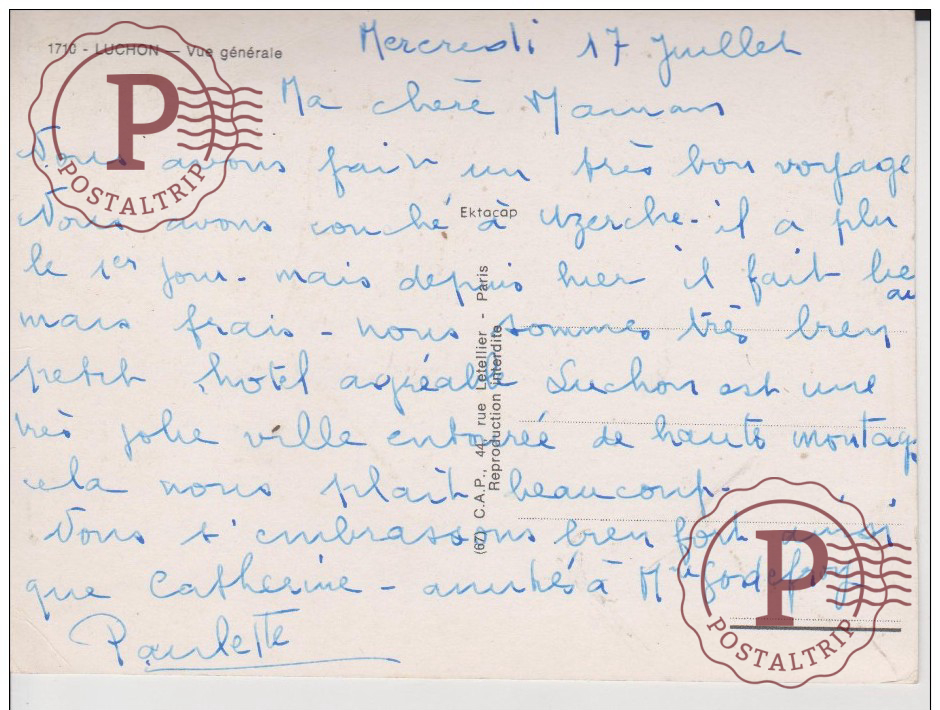 1710 - LUCHON — Vue générale
Mercredi 17 Juillet
Ma chère Maman
Nous avons fait un très bon voyage
Nous avons couché à Uzerche - il a plu
le 1er jour - mais depuis hier il fait beau
mais frais - nous sommes très bien
petit hotel agréable Luchon est une
très jolie ville entourée de hauts montag
cela nous plait beaucoup -
Nous t'embrassons bien fort ainsi
que Catherine - amitiés à Mr Godefroy
Paulette
Ektacap
(67) C.A.P., 44, rue Letellier - Paris
Reproduction interdite
P
POSTALTRIP
P
POSTALTRIP